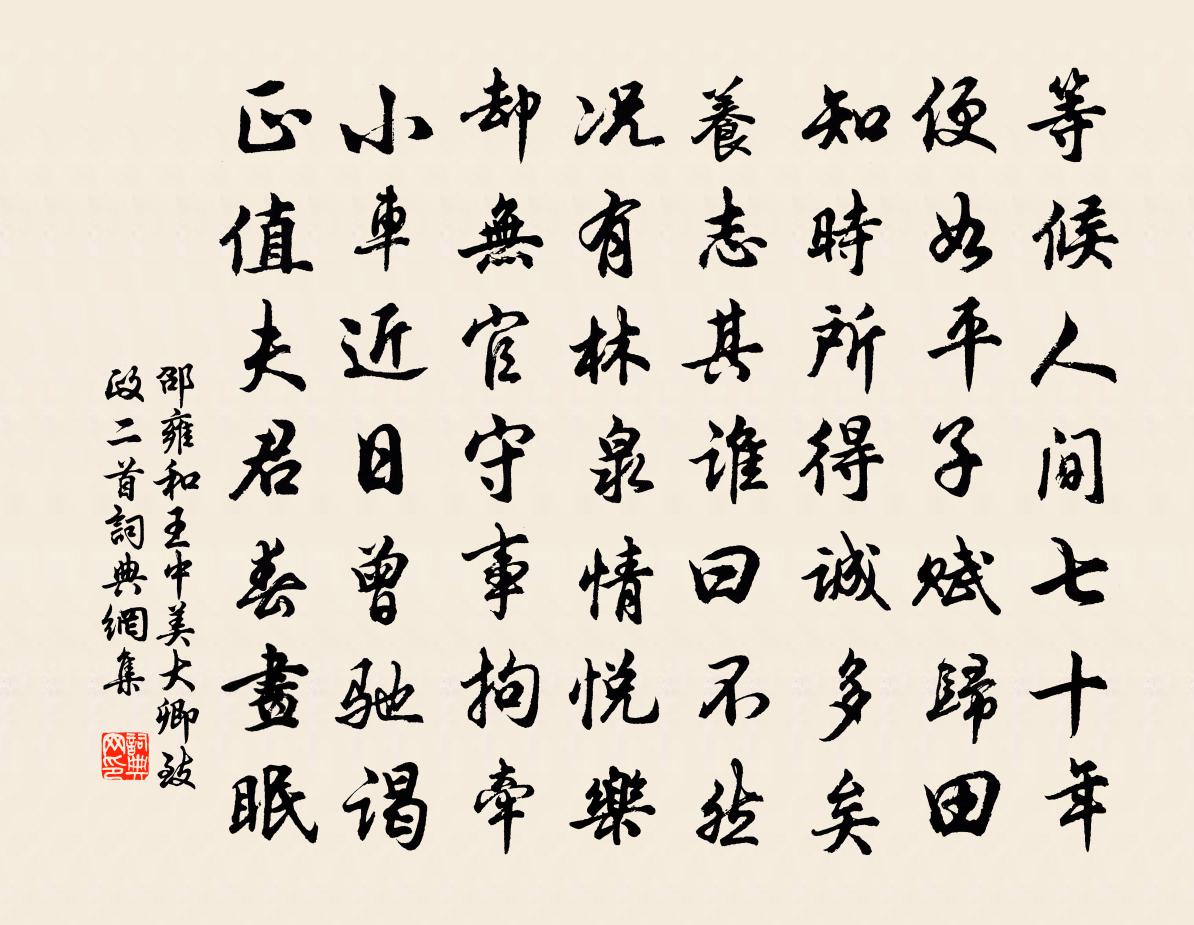 等候人間七十年
便如平子賦歸田
知時所得誠多矣
養志其誰曰不然
況有林泉情悅樂
却無官守事拘牽
小車近日曾馳謁
正值夫君春晝眠
邵雍和王中美大卿致
政二首詞典網集
詞典
网印